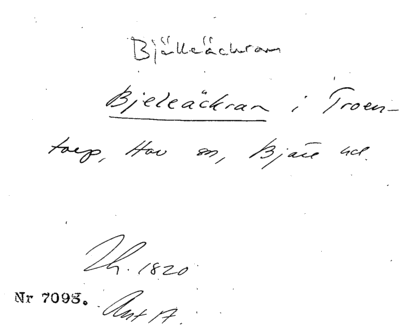 Bjälleäckran
Bjeleäckran i Troen-
torp, Hov sn, Bjäre hd.
Lh. 1820
Nr 7093. Akt 17.